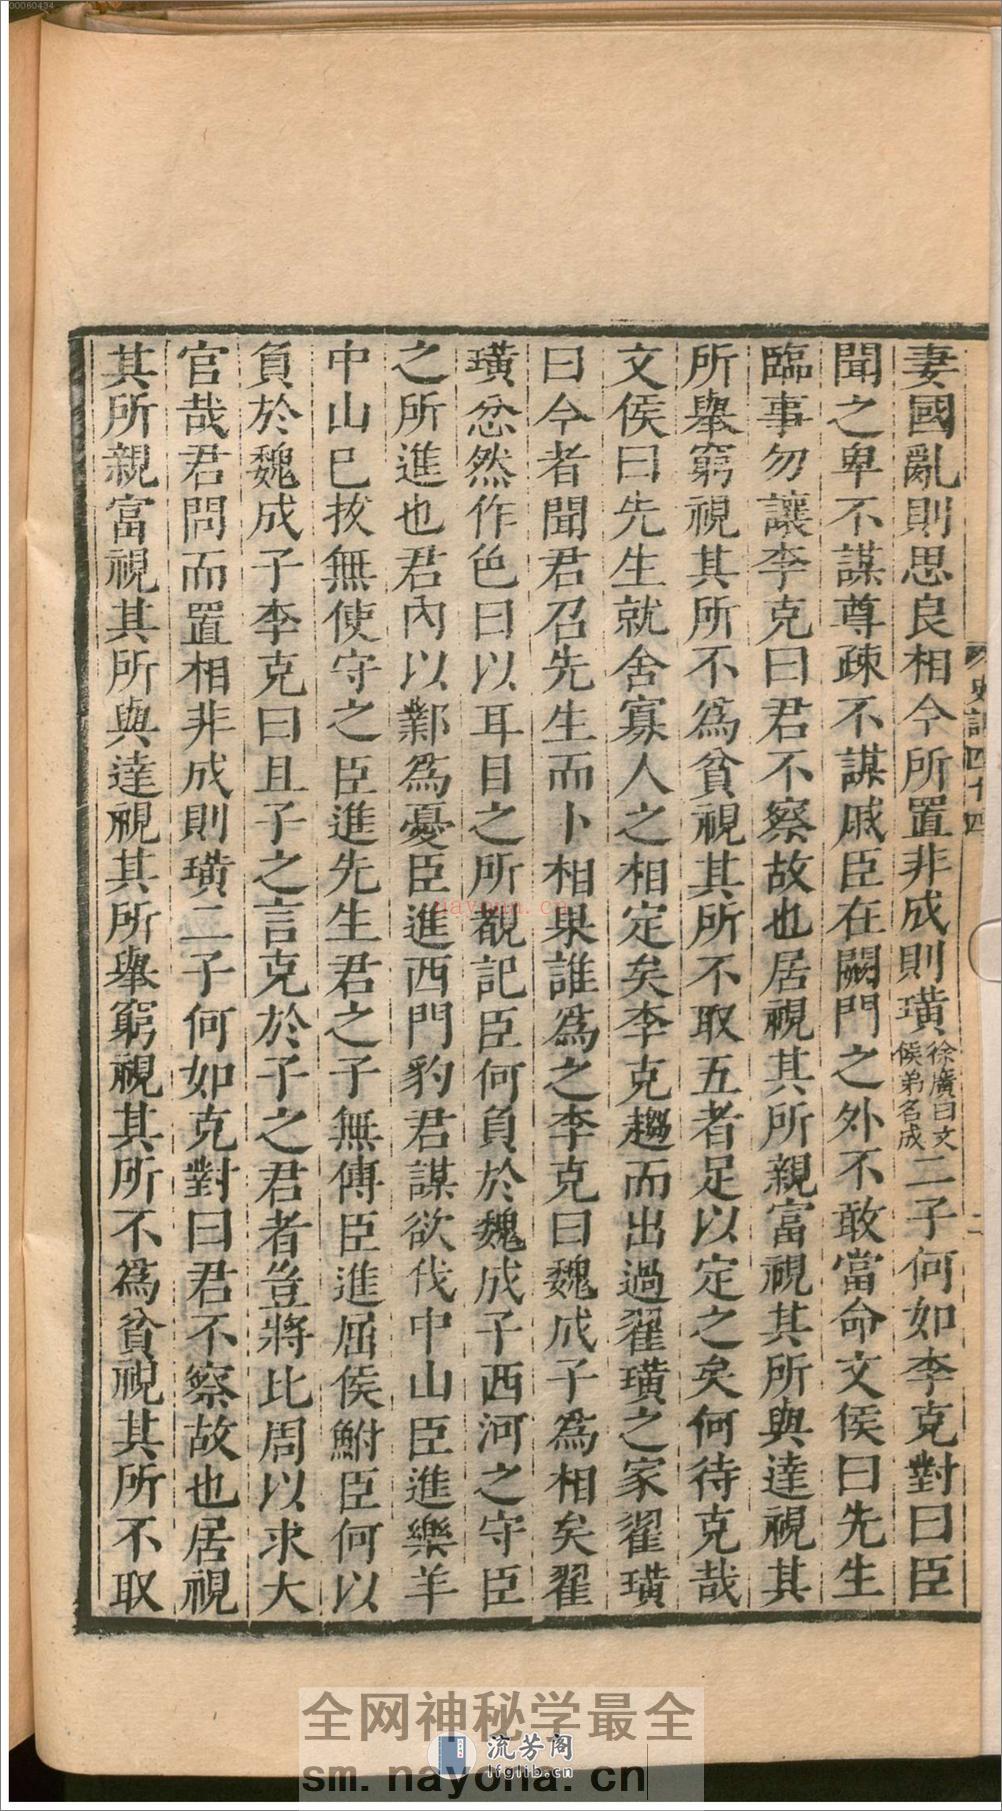 00060434
史記四十四
二
妻國亂則思良相今所置非成則璜徐廣曰文侯弟名成二子何如李克對曰臣
聞之卑不謀尊疎不謀戚臣在闕門之外不敢當命文侯曰先生
臨事勿讓李克曰君不察故也居視其所親富視其所與達視其
所舉窮視其所不爲貧視其所不取五者足以定之矣何待克哉
文侯曰先生就舍寡人之相定矣李克趨而出過翟璜之家翟璜
曰今者聞君召先生而卜相果誰爲之李克曰魏成子爲相矣翟
璜忿然作色曰以耳目之所覩記臣何負於魏成子西河之守臣
之所進也君內以鄴爲憂臣進西門豹君謀欲伐中山臣進樂羊
中山已拔無使守之臣進先生君之子無傅臣進屈侯鮒臣何以
負於魏成子李克曰且子之言克於子之君者豈將比周以求大
官哉君問而置相非成則璜二子何如克對曰君不察故也居視
其所親富視其所與達視其所舉窮視其所不爲貧視其所不取
nayona.cn
全网神秘学最全
流芳阁
lfglib.cn
sm.nayona.cn